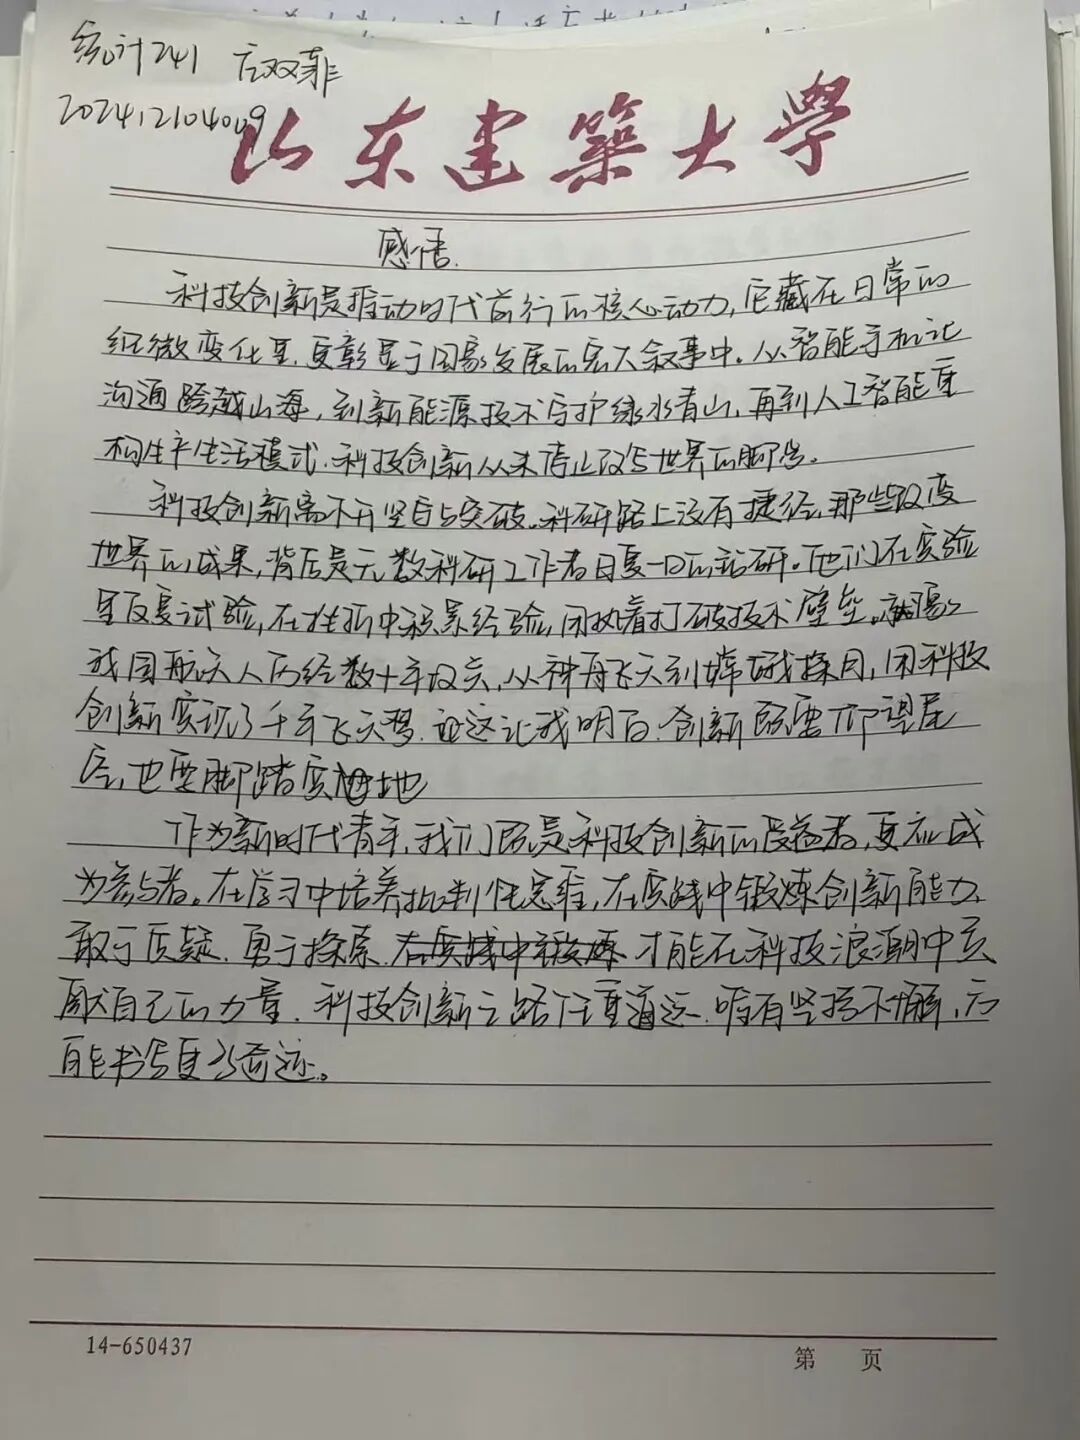 统计241 双菲
202412104009
山东建筑大学
感悟.
科技创新是推动时代前行的核心动力,它藏在日常的
细微变化里,更彰显于国家发展的宏大叙事中。从智能手机让
沟通跨越山海,到新能源技术守护绿水青山,再到人工智能重
构生产生活模式,科技创新从未停止改写世界的脚步。
科技创新离不开坚守与突破。科研路上没有捷径,那些改变
世界的成果,背后是无数科研工作者日复一日的钻研。他们在实验
里反复试验,在挫折中积累经验,用执着打破技术壁垒。
我国航天人历经数十年攻克,从神舟飞天到嫦娥探月,用科技
创新实现了千年飞天梦.这让我明白,创新既要仰望星
空,也要脚踏实地
作为新时代青年,我们既是科技创新的受益者,更应成
为参与者。在学习中培养批判性思维,在实践中锻炼创新能力,
敢于质疑.勇于探索.在实践中锻炼 才能在科技浪潮中贡
献自己的力量.科技创新之路任重道远.唯有坚持不懈,方
能书写更多奇迹。
14-650437
第 页